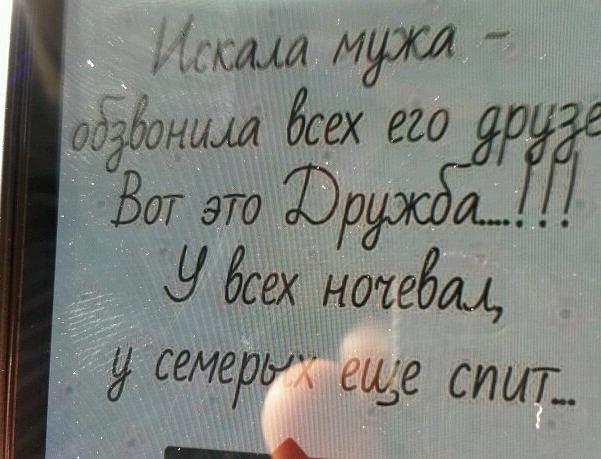 Искала мужа -
обзвонила всех его друзе
Вот это Дружба....!!!
У всех ночевал,
у семерых еще спит...